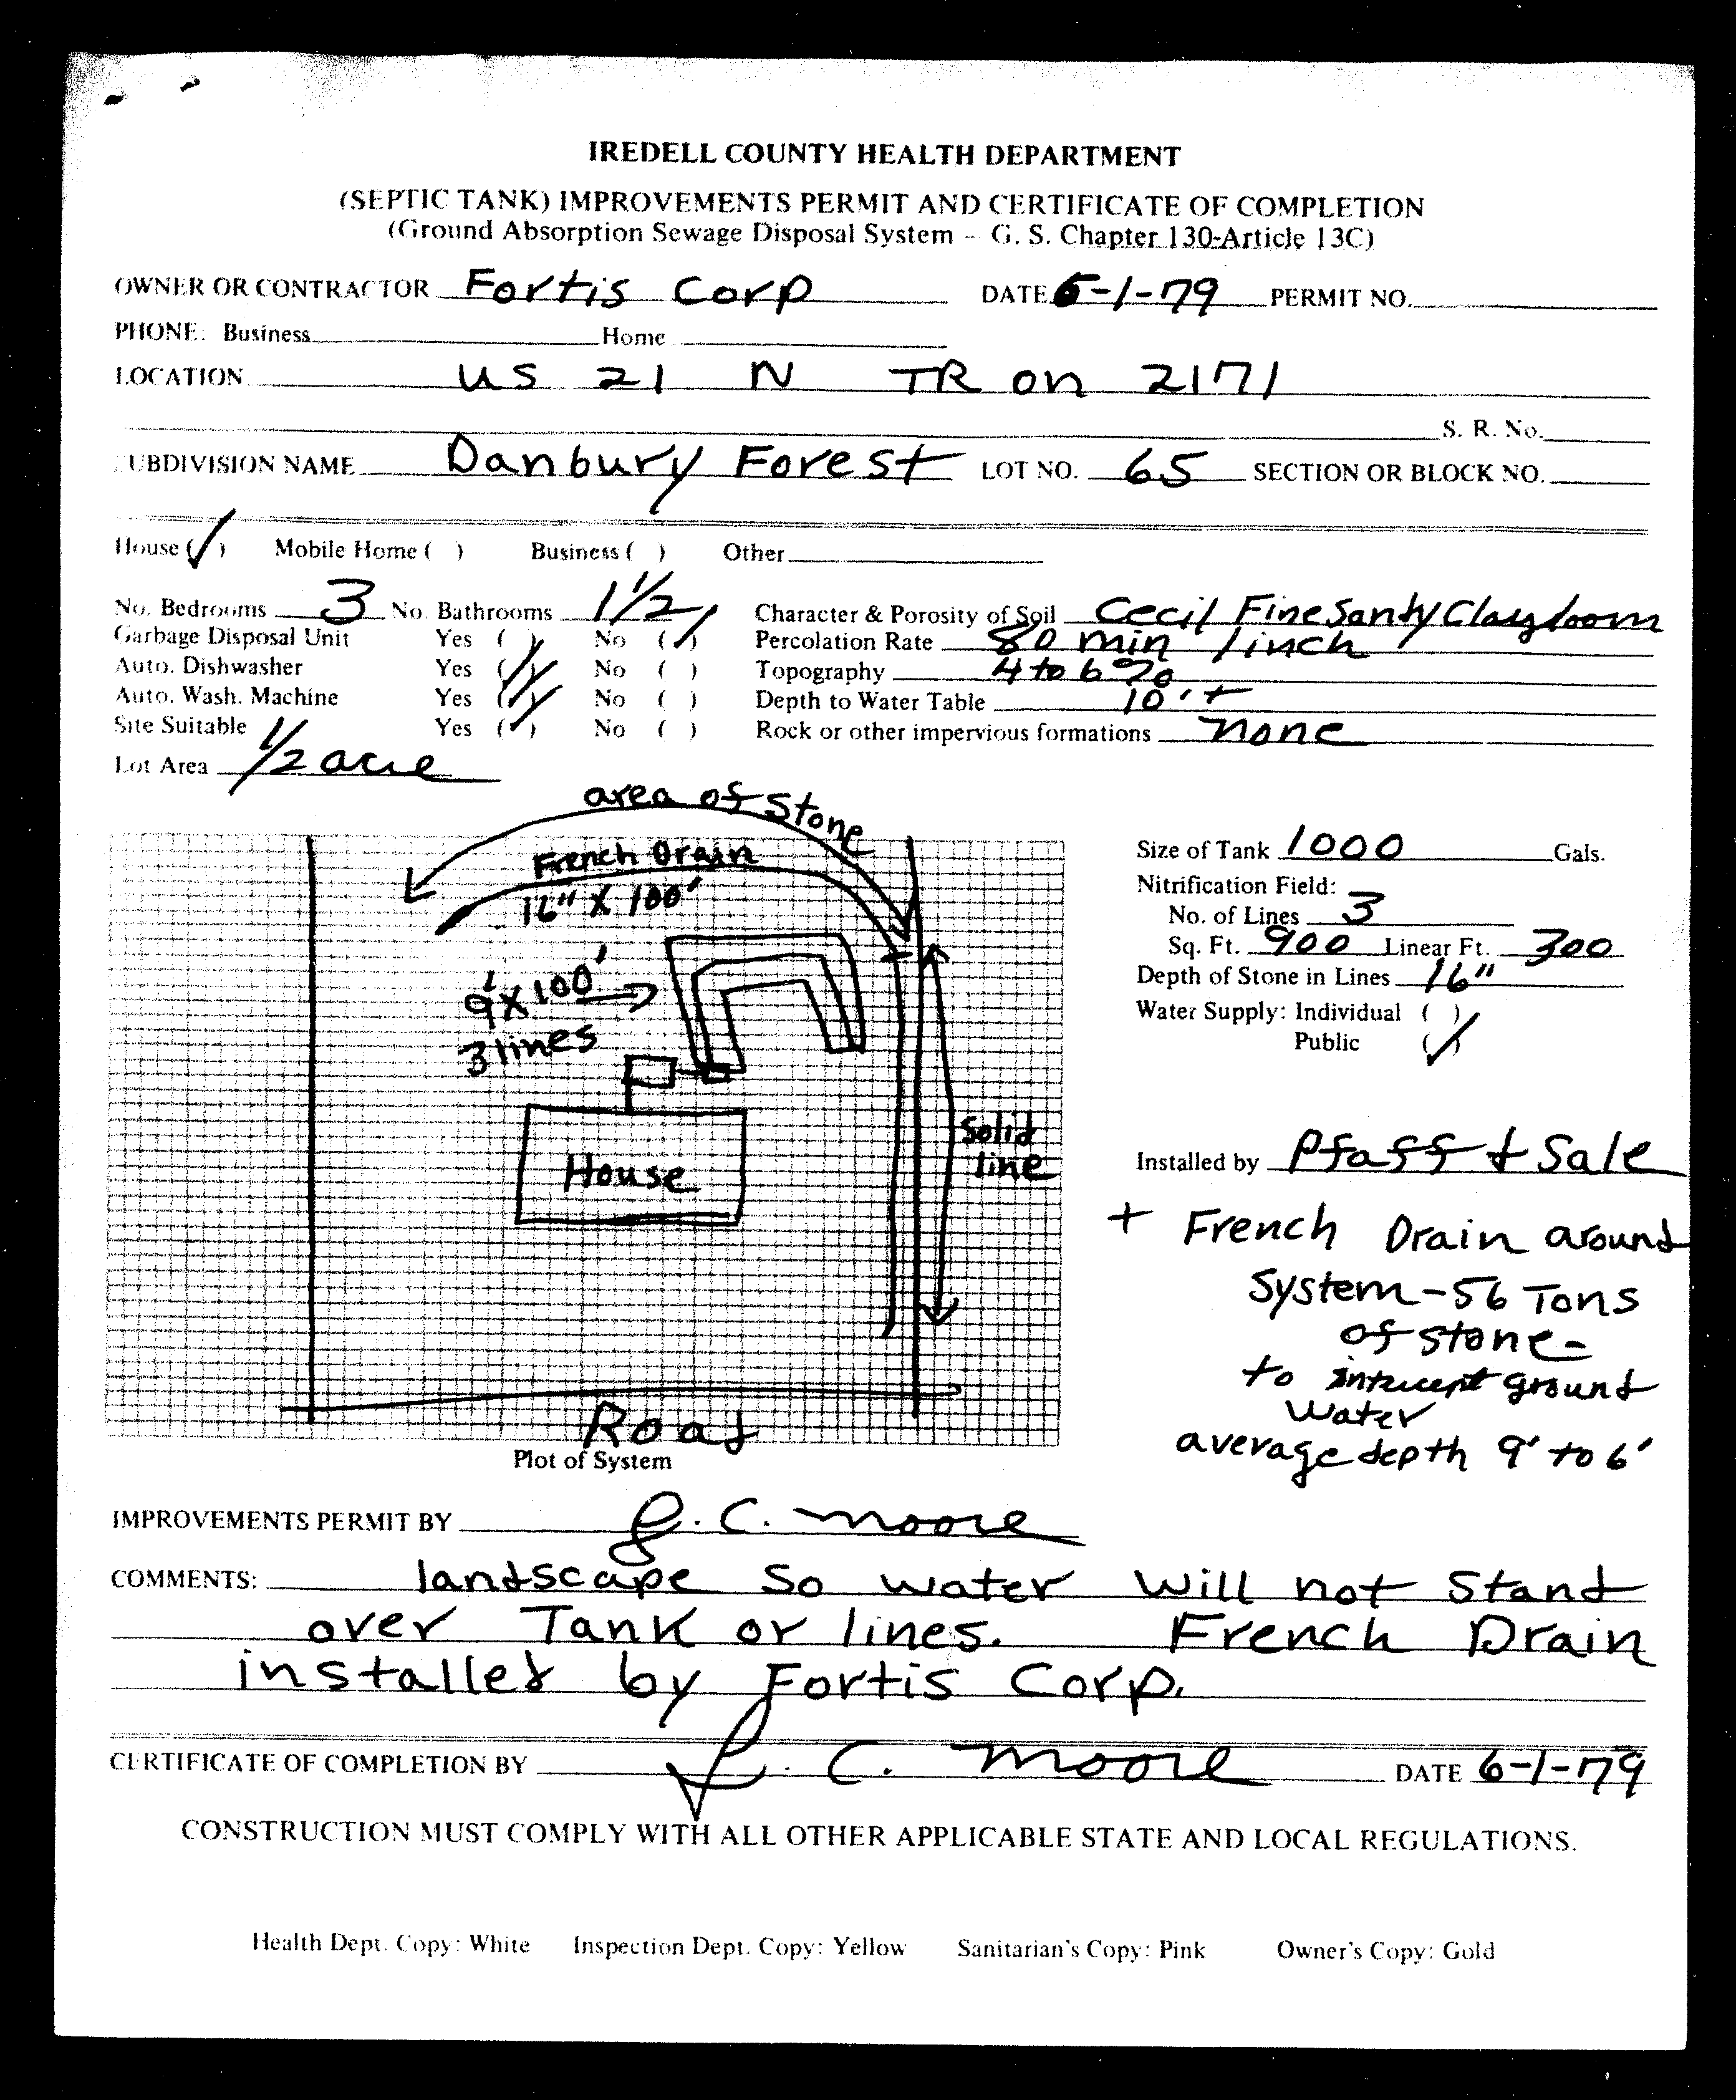 IREDELL COUNTY HEALTH DEPARTMENT
(SEPTIC TANK) IMPROVEMENTS PERMIT AND CERTIFICATE OF COMPLETION
(Ground Absorption Sewage Disposal System - G. S. Chapter 130-Article 13C)
OWNER OR CONTRACTOR Fortis Corp DATE 6-1-79 PERMIT NO.
PHONE: Business Home
LOCATION US 21 N TR on 2171
S. R. No.
UBDIVISION NAME Danbury Forest LOT NO. 65 SECTION OR BLOCK NO.
House (✓) Mobile Home ( ) Business ( ) Other
No. Bedrooms 3 No. Bathrooms 1 1/2 Character & Porosity of Soil Cecil Fine Sandy Clay loom
Garbage Disposal Unit Yes ( ) No (✓) Percolation Rate 80 min / inch
Auto. Dishwasher Yes (✓) No ( ) Topography 4 to 6 %
Auto. Wash. Machine Yes (✓) No ( ) Depth to Water Table 10' +
Site Suitable Yes (✓) No ( ) Rock or other impervious formations none
Lot Area 1/2 acre
area of Stone
French Drain
16" X 100'
9' X 100'
3 lines
House
Solid
line
Road
Plot of System
Size of Tank 1000 Gals.
Nitrification Field:
No. of Lines 3
Sq. Ft. 900 Linear Ft. 300
Depth of Stone in Lines 16"
Water Supply: Individual ( )
Public (✓)
Installed by Pfaff + Sale
+ French Drain around
System - 56 Tons
of stone -
to intercept ground
water
average depth 9' to 6'
IMPROVEMENTS PERMIT BY C. Moore
COMMENTS: landscape so water will not stand
over Tank or lines. French Drain
installed by Fortis Corp.
CERTIFICATE OF COMPLETION BY C. Moore DATE 6-1-79
CONSTRUCTION MUST COMPLY WITH ALL OTHER APPLICABLE STATE AND LOCAL REGULATIONS.
Health Dept. Copy: White Inspection Dept. Copy: Yellow Sanitarian's Copy: Pink Owner's Copy: Gold